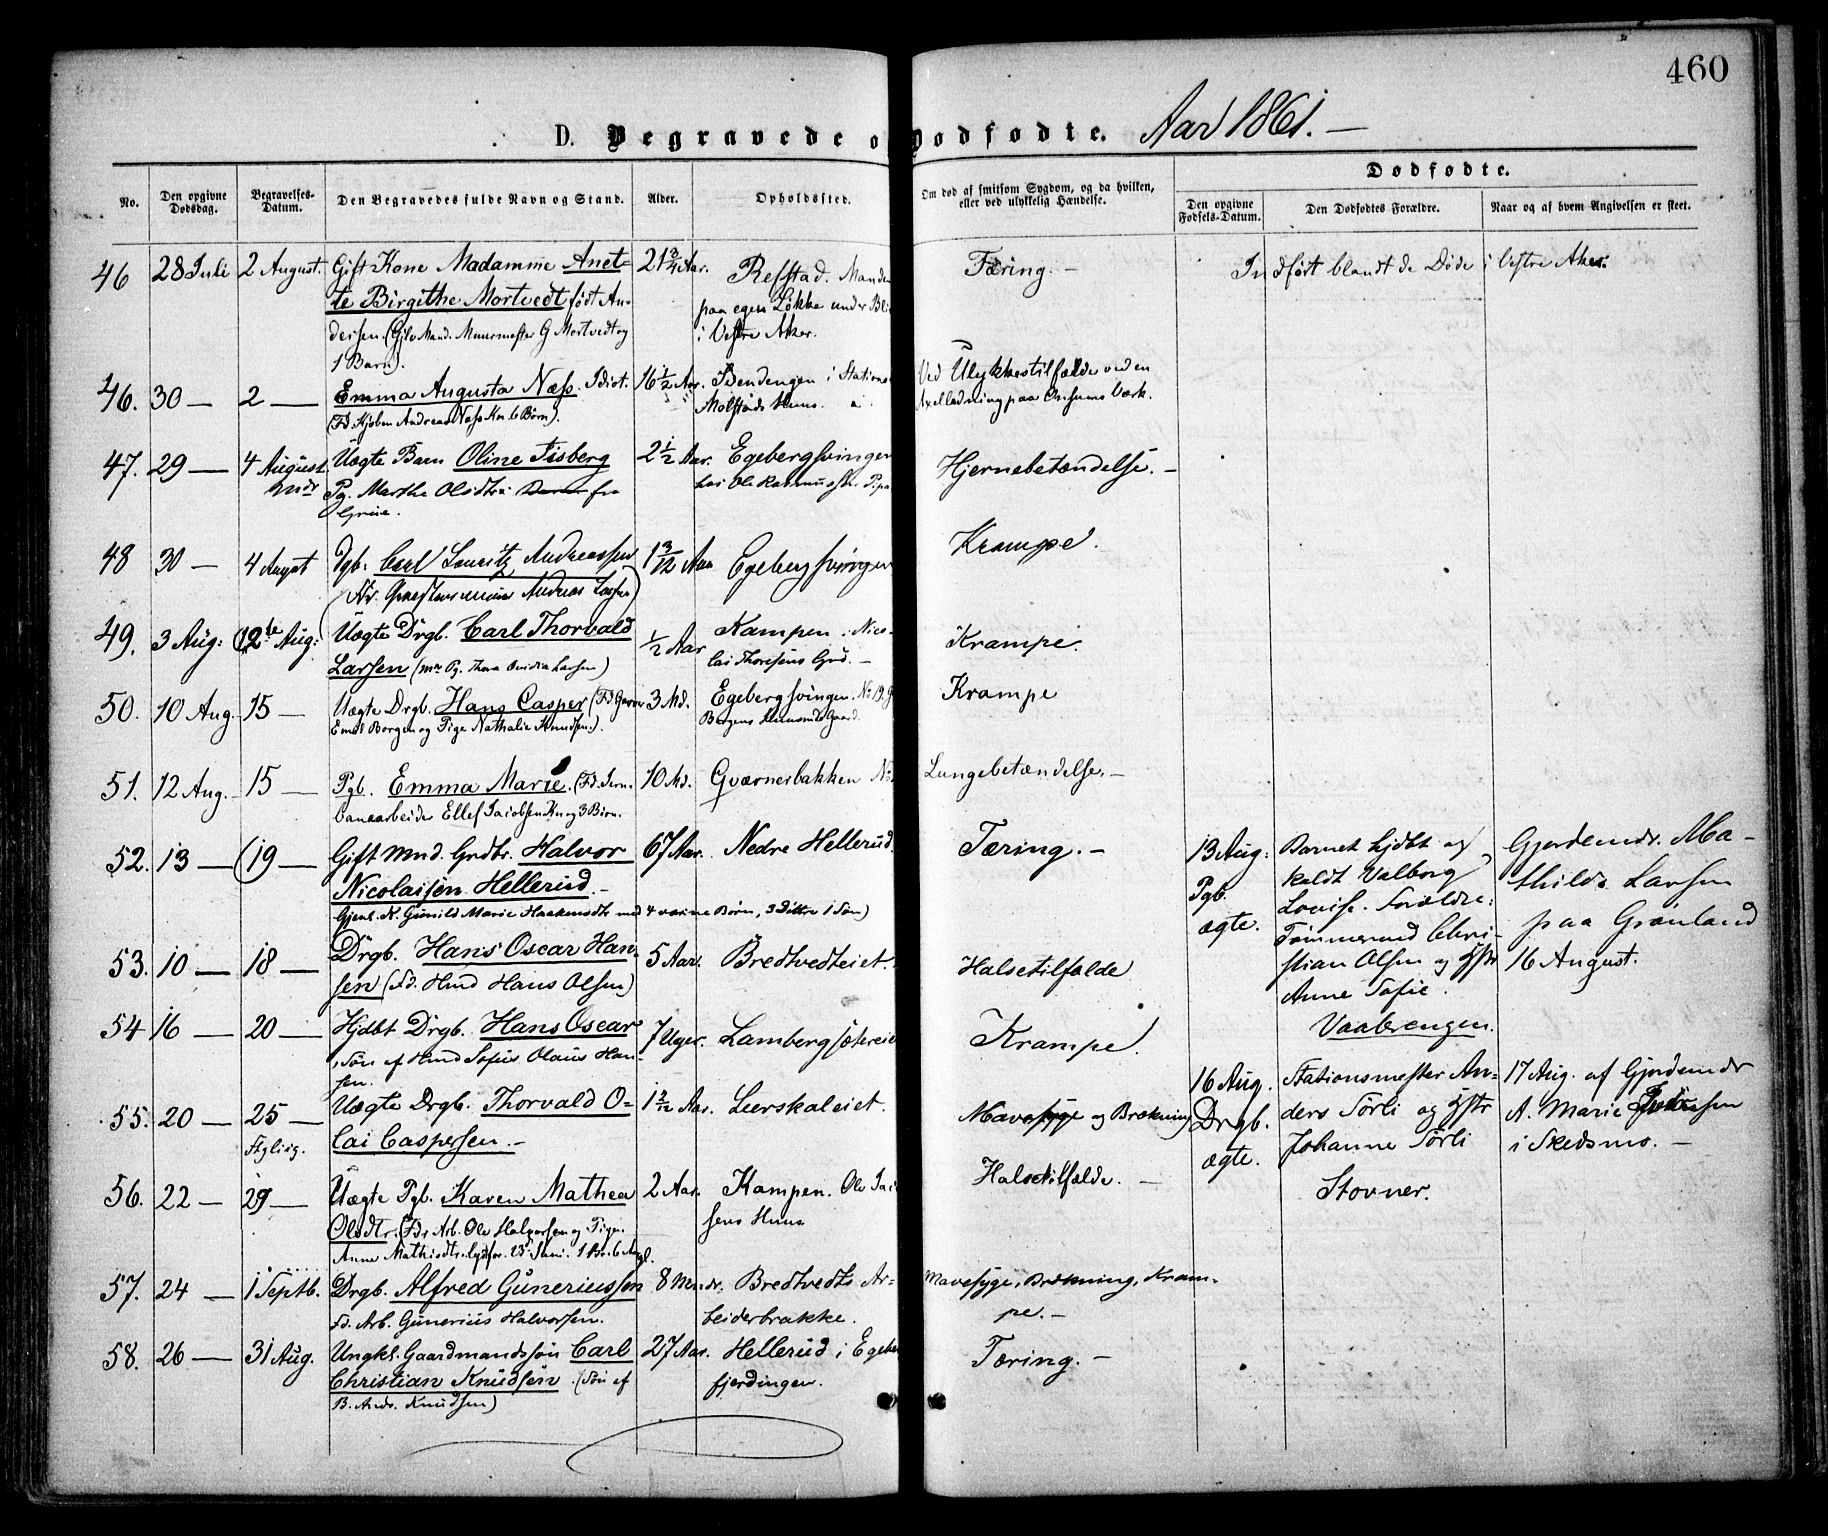 460
D. Begravede o Dødfødte. Aar 1861. —
No.
Den opgivne Dødsdag.
Begravelses-Datum.
Den Begravedes fulde Navn og Stand.
Alder.
Opholdssted.
Om død af smitsom Sygdom, og da hvilken, eller ved ulykkelig Hændelse.
Dødfødte.
Den opgivne Fødsels-Datum.
Den Dødfødtes Forældre.
Naar og af hvem Angivelsen er skeet.
46 28 Juli 2 August. Gift Kone Madamme Anet- 21 3/4 Aar. Refstad. Manden Tæring. — Indført blandt de Døde i Vestre Aker.
te Birgithe Mortvedt født An- paa egen Løkke under Bli
dersen. (Gjlv Mand. Muurmester G Mortvedt og i Vestre Aker.
1 Barn).
46. 30 — 2 — Emma Augusta Næss. Idiot. 16 1/2 Aar. i Stations Ved Ulykkestilfælde ved en
(Fd. Kjøbm Andreas Næss Kn 6 Børn). Molstads Huus. Axelledning paa Værk.
47. 29 — 4 August Uægte Barn Oline Tisberg 2 1/2 Aar. Egebergsvingen Hjernebetændelse. —
Pg. Marthe Olsdtr fra hos Ole Rasmussen
Grue.
48 30 — 4 August Dgb. Carl Lauritz Andreassen 1 3/12 Aar Egebergsvingen Krampe.
(Fdr. Andreas Larsen)
49. 3 Aug: (12te Aug: Uægte Drgb. Carl Thorvald 1/2 Aar Kampen. Nico- Krampe.
Larsen (mr Pg. Thea Larsen) lai Thoresens Grd. —
50. 10 Aug. 15 — Uægte Drgb. Hans Casper (Fd Garver 3 Md. Egebergsvingen. No 19. Krampe
Emil Borgen og Pige Nathalie Knudsen.) Borgens Gaard.
51. 12 Aug. 15 — Pgb. Emma Marie. (Fd. Jern- 10 Md. Qværnerbakken No Lungebetændelse. —
banearbeider Ellef Jacobsen Kn og 3 Børn.
52. 13 — (19 — Gift Mnd. Grdbr. Halvor 67 Aar. Nedre Hellerud Tæring. —
Nicolaisen Hellerud. —
Gjenl. K. Gunild Marie Haakensdtr med 4 voxne Børn, 3 Døttre 1 Søn)
13 Aug: Barnet hjdbt og Gjordemdr. Ma-
Pgb. kaldt Valborg thilde Larsen
ægte. Lovise. Forældre: paa Grønland
Tømmermd Chri- 16 August.
stian Olsen og Hstr
Anne Sofie.
Vaalerengen.
53. 10 — 18 — Drgb. Hans Oscar Han- 5 Aar. Bredtvedteiet. Halsetilfælde
sen (Fd. Hmd Hans Olsen)
54 16 — 20 — Hjdbt Drgb. Hans Oscar 7 Uger. Lambergsætereie Krampe.
Søn af Hmd Sofus Olaus Han-
sen.
55. 20 — 25 — Uægte Drgb. Thorvald O- 1 3/12 Aar. Leerskaleiet. Mavesyge og Brækning
lai Caspersen. —
16 Aug. Stationsmester An- 17 Aug. af Gjordemdr
Drgb. ders Sørli og Hstr A. Marie
ægte. Johanne Sørli i Skedsmo. —
Stovner.
56. 22 — 29 — Uægte Pgb. Karen Mathea 2 Aar. Kampen. Ole Halsetilfælde. —
Olsdtr. (Fdr Arb. Ole Halvorsen og Pige sens Huus
Anne Mathisdtr.
57. 24 — 1 Septb. Drgb. Alfred Guneriussen 8 Mndr. Bredtvedts Ar- Mavesyge, Brækning, Kram-
Fd. Arb. Gunerius Halvorsen. beiderbrakke. pe. —
58. 26 — 31 Aug. Ungkl. Gaardmandssøn Carl 27 Aar. Hellerud i Egebe Tæring. —
Christian Knudsen. (Søn af fjerdingen.
B. Ands. Knudsen)